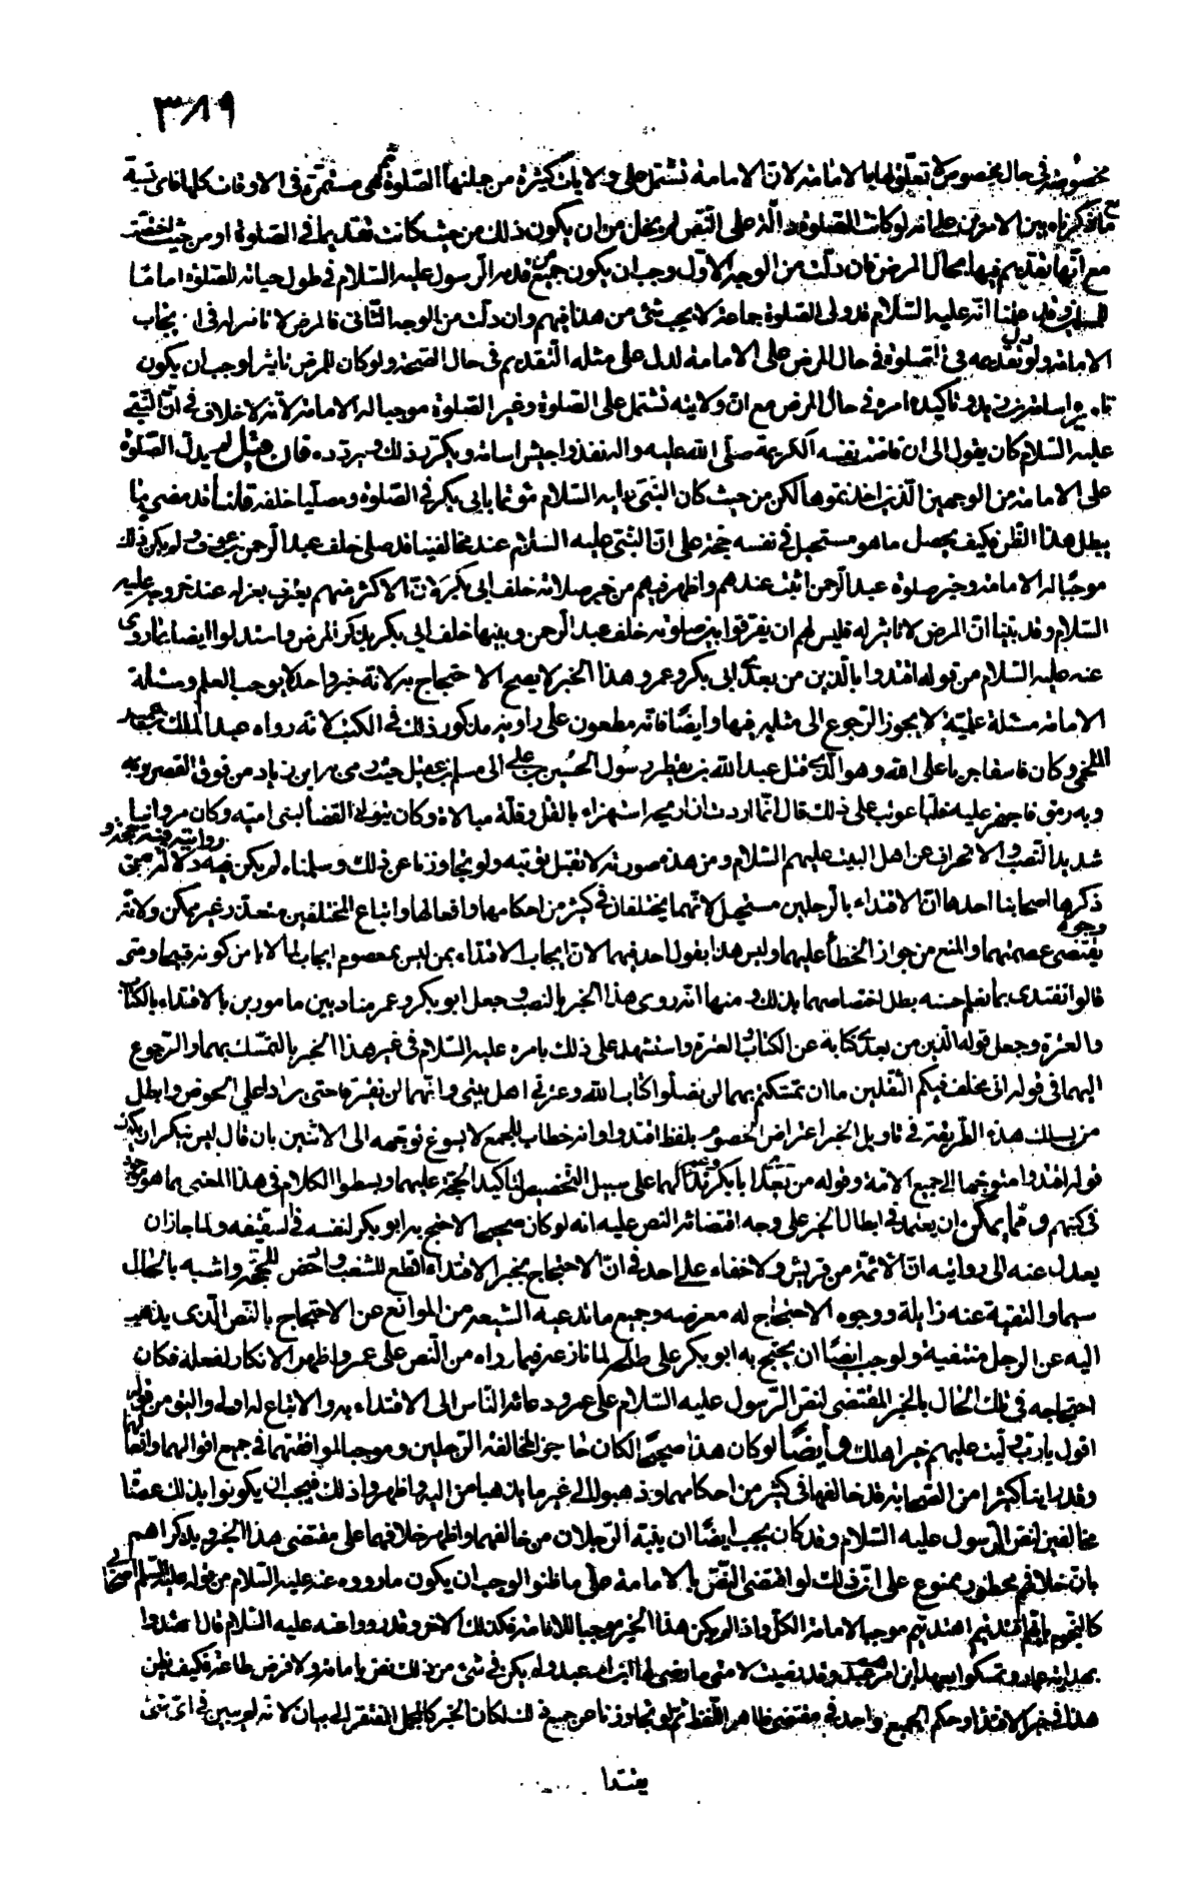 ٣٨٩
مخصوصة في حال مخصوص لا تعلق لها بالامامة لان الامامة تشتمل على ولايات كثيرة من جملتها الصلوة ثم هي مستمرة في الاوقات كلها فاى نسبة
ما ذكرناه بين الامرين على انه لو كانت الصلوة دالة على النص لم يخل من ان يكون ذلك من حيث كانت تقديما في الصلوة او من حيث اختصت
مع انها تقديم فيها بحال المرض فان دلت من الوجه الاول وجب ان يكون جميع من قدمه الرسول عليه السلام في طول حياته للصلوة اماما
للمسلمين وقد علمنا انه عليه السلام قد ولى الصلوة جماعة لا يجب شئ من هذا فيهم وان دلت من الوجه الثاني فالمرض لا تاثير له في ايجاب
الامامة ولو دل تقديمه في الصلوة في حال المرض على الامامة لدل على مثله التقديم في حال الصحة ولو كان للمرض تاثير لوجب ان يكون
تاميره اسامة بن زيد وتاكيده امره في حال المرض مع ان ولايته تشتمل على الصلوة وغير الصلوة موجبا له الامامة لانه لا خلاف في ان النبي
عليه السلام كان يقول الى ان فاضت نفسه الكريمة صلى الله عليه واله نفذوا جيش اسامة ويكرر ذلك ويردده فان قيل لم يدل الصلوة
على الامامة من الوجهين الذين اخذتموها لكن من حيث كان النبي عليه السلام مؤتما بابي بكر في الصلوة ومصليا خلفه قلنا قد مضى ما
يبطل هذا الظن فكيف يجعل ما هو مستحيل في نفسه حجة على ان النبي عليه السلام عند مخالفينا قد صلى خلف عبد الرحمن بن عوف ولم يكن ذلك
موجبا له الامامة وخبر صلوة عبد الرحمن اثبت عندهم واظهر فيهم من خبر صلاته خلف ابي بكر لان الاكثر منهم يعترف بعزله عند خروجه عليه
السلام وقد بينا ان المرض لا تاثير له فليس لهم ان يفرقوا بين صلوته خلف عبد الرحمن وبينها خلف ابي بكر بذكر المرض واستدلوا ايضا بما روى
عنه عليه السلام من قوله اقتدوا بالذين من بعدي ابي بكر وعمر وهذا الخبر لا يصح الاحتجاج به لانه خبر واحد لا يوجب العلم ومسئلة
الامامة مسئلة علمية لا يجوز الرجوع الى مثله فيها وايضا فانه مطعون على راويه مذكور ذلك في الكتب لانه رواه عبد الملك بن عمير
اللخمي وكان فاسقا جريا على الله وهو الذي قتل عبد الله بن يقطر رسول الحسين بن علي الى مسلم بن عقيل حيث رمى به ابن زياد من فوق القصر
وبه رمق فاجهز عليه فلما عوتب على ذلك قال انما اردت ان اريحه استهزاء بالقتل وقلة مبالاة وكان يتولى القضاء لبني امية وكان مروانيا
شديد النصب والانحراف عن اهل البيت عليهم السلام ومن هذه صورته لا تقبل روايته ولو تجاوزنا عن ذلك وسلمناه لم يكن فيه دلالة من وجوه
ذكرها اصحابنا احدها ان الاقتداء بالرجلين مستحيل لانهما يختلفان في كثير من احكامهما وافعالهما واتباع المختلفين متعذر غير ممكن ولانه
يقتضي عصمتهما والمنع من جواز الخطأ عليهما وليس هذا بقول احد فيهما لان ايجاب الاقتداء بمن ليس بمعصوم ايجاب لما لا يامن كونه قبيحا ومتى
قالوا نقتدى بما نعلم حسنه بطل اختصاصهما بذلك ومنها انه روى هذا الخبر بالنصب وجعل ابو بكر وعمر مناديين مامورين بالاقتداء بالكتاب
والعترة وجعل قوله الذين من بعدي كناية عن الكتاب والعترة واستشهد على ذلك بامره عليه السلام في غير هذا الخبر بالتمسك بهما والرجوع
اليهما في قوله اني مخلف فيكم الثقلين ما ان تمسكتم بهما لن تضلوا كتاب الله وعترتي اهل بيتي وانهما لن يفترقا حتى يردا علي الحوض وابطل
من سلك هذه الطريقة في تاويل الخبر اعتراض الخصوم بلفظ اقتدوا وانه خطاب للجمع لا يسوغ توجهه الى الاثنين بان قال ليس ننكر ان يكون
قوله اقتدوا متوجها الى جميع الامة وقوله من بعدي ابا بكر وعمر نداء لهما على سبيل التخصيص لتاكيد الحجة عليهما وبسطوا الكلام في هذا المعنى بما هو موجود
في كتبهم ومما يمكن ان يعتمد في ابطال الخبر على وجه اقتضائه النص عليه انه لو كان صحيحا لاحتج به ابو بكر لنفسه في السقيفة ولما جاز ان
يعدل عنه الى روايته ان الائمة من قريش ولا خفاء على احد في ان الاحتجاج بخبر الاقتداء اقطع للشغب واخص للحجة واشبه بالحال
سيما والتقية عنه زايلة ووجوه الاحتجاج له معرضه وجميع ما تدعيه الشيعة من الموانع عن الاحتجاج بالنص الذي يذهب
اليه عن الرجل منتفية ولوجب ايضا ان يحتج به ابو بكر على طلحة لما نازعه فيما رواه من النص على عمر واظهر الانكار لفعله فكان
احتجاجه في تلك الحال بالخبر المقتضي لنص الرسول عليه السلام على عمر ودعائه الناس الى الاقتداء به والاتباع له اولى واليق من قوله
اقول يا رب وليت عليهم خير اهلك وايضا لو كان هذا صحيحا لكان حاجزا مخالفة الرجلين وموجبا لموافقتهما في جميع اقوالهما وافعالهما
وقد راينا كثيرا من الصحابة قد خالفهما في كثير من احكامهما وذهبوا الى غير ما يذهبا من اليه واظهروا ذلك فيجب ان يكونوا بذلك عصاة
مخالفين لنص الرسول عليه السلام وقد كان يجب ايضا ان ينبه الرجلان من خالفهما واظهر خلافهما على مقتضى هذا الخبر ويذكراهم
بان خلافهم محظور ممنوع على ان ذلك لو اقتضى النص بالامامة على ما ظنوا لوجب ان يكون ما رووه عنه عليه السلام من قوله عليه السلم اصحابي
كالنجوم بايهم اقتديتم اهتديتم موجبا لامامة الكل واذا لم يكن هذا الخبر موجبا للامامة فكذلك الاخر وقد رووا عنه عليه السلام قال اهتدوا
بهدى عمار وتمسكوا بعهد ابن ام عبد وقد رضيت لامتي ما رضي لها ابن ام عبد ولم يكن في شئ من ذلك نص بامامة ولا فرض طاعة فكيف يظن
هذا في خبر الاقتداء وحكم الجميع واحد في مقتضى ظاهر اللفظ ثم لو تجاوزنا عن جميع ذلك لكان الخبر كالمجمل المفتقر الى بيان لانه لم يبين في اى شئ
يقتدا